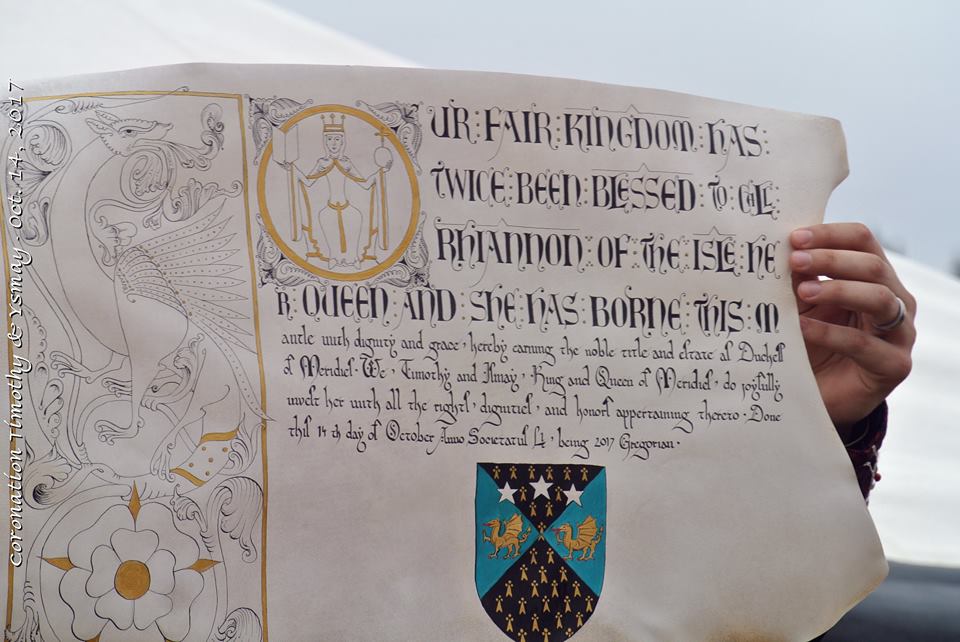 OUR:FAIR:KINGDOM:HAS:
TWICE:BEEN:BLESSED:TO:CALL:
RHIANNON:OF:THE:ISLE:HE
R:QUEEN:AND:SHE:HAS:BORNE:THIS:M
antle with dignity and grace, hereby earning the noble title and estate of Duchess
of Meridies · We, Timothy and Ysmay, King and Queen of Meridies, do joyfully
invest her with all the rights, dignities, and honors appertaining thereto · Done
this 14th day of October, Anno Societatus being 2017 Gregorian ·
Coronation Timothy & Ysmay - Oct. 14, 2017